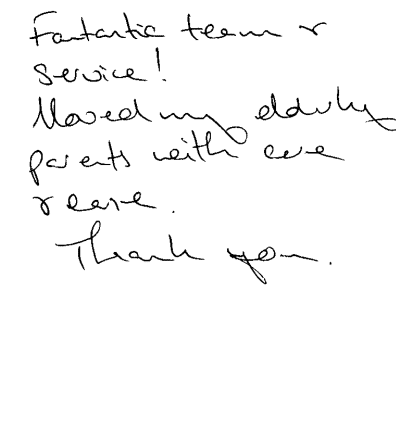 Fantastic team &
Service!
Moved my elderly
parents with care
& ease.
Thank you.